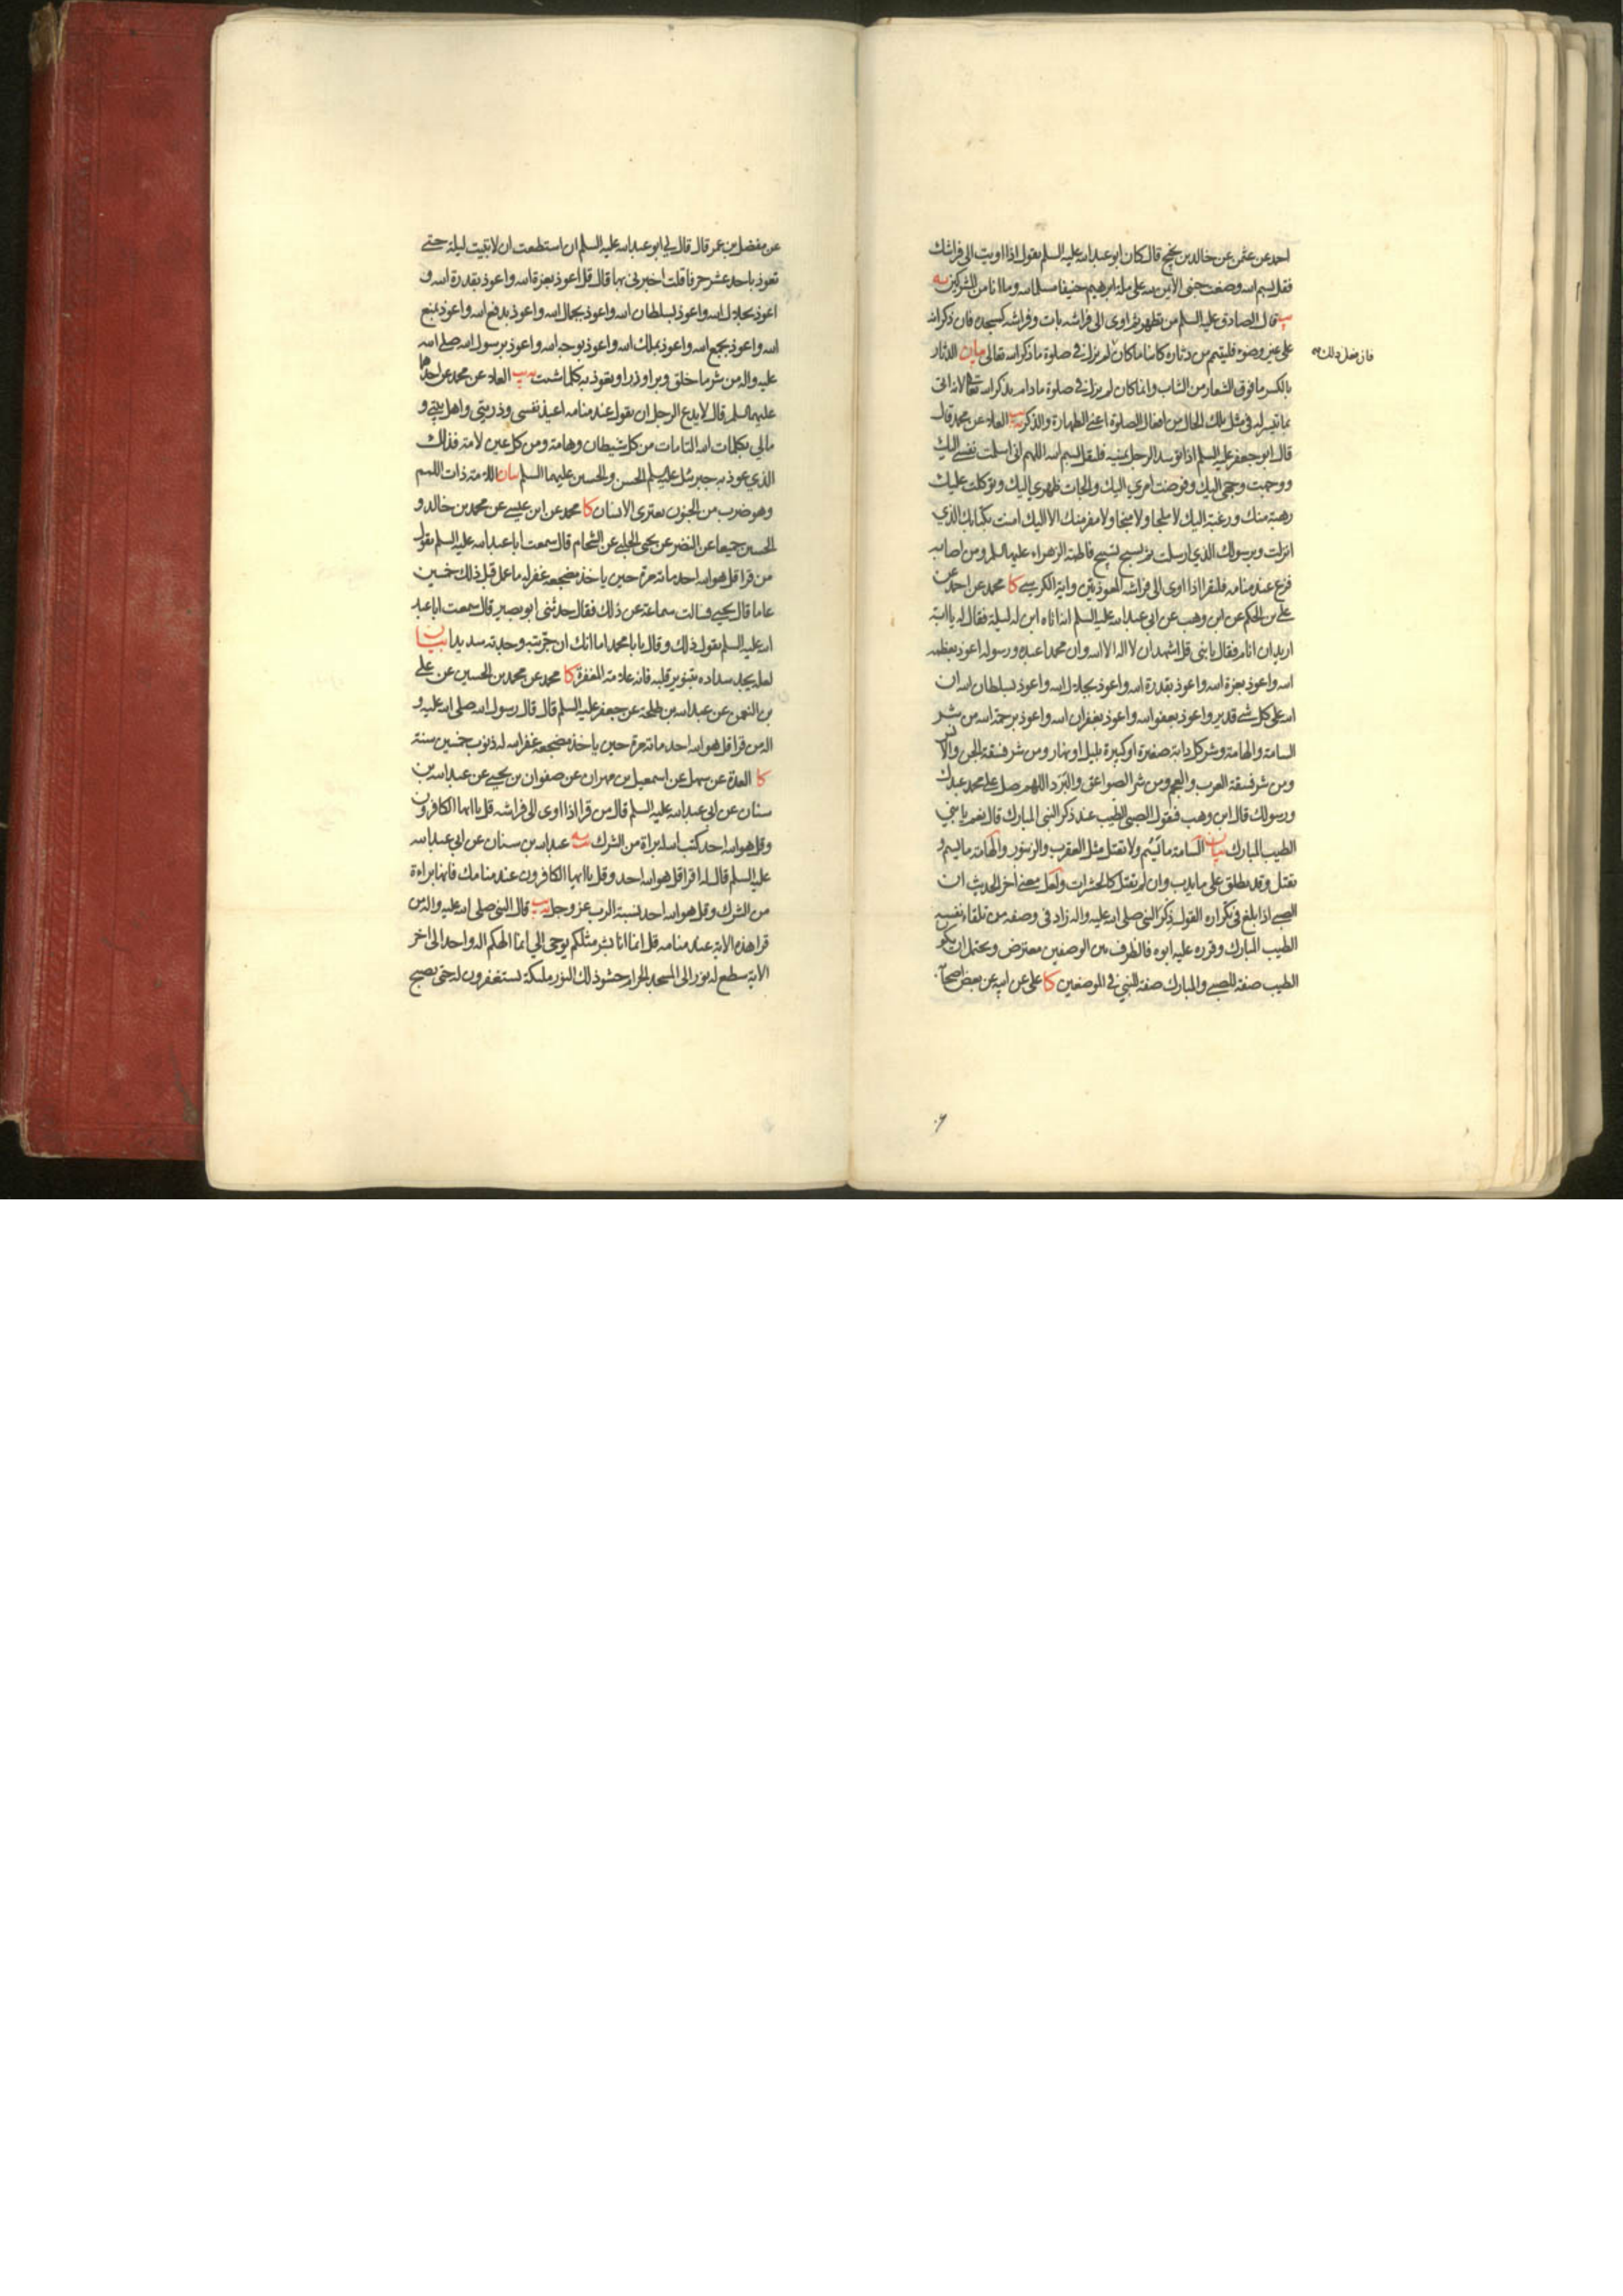 احمد عن عثمن عن خالد بن نجيح قال كان ابو عبد الله عليه السلم يقول اذا اويت الى فراشك
فقل بسم الله وضعت جنبي الايمن لله على ملة ابرهيم حنيفا مسلما لله وما انا من المشركين يه
يب قال الصادق عليه السلم من تطهر ثم اوى الى فراشه بات وفراشه كمسجده فان ذكر انه
على غير وضوء فليتيمم من دثاره كائنا ما كان لم يزل في صلوة ما ذكر الله تعالى بيان الدثار
فان فعل ذلك
بالكسر ما فوق الشعار من الثياب وانما كان لم يزل في صلوة ما دام يذكر الله تعالى لانه اتى
بما تيسر له في مثل تلك الحال من افعال الصلوة اعني الطهارة والذكر يب العلاء عن محمد قال
قال ابو جعفر عليه السلم اذا توسد الرجل يمينه فليقل بسم الله اللهم اني اسلمت نفسي اليك
ووجهت وجهي اليك وفوضت امري اليك والجات ظهري اليك وتوكلت عليك
رهبة منك ورغبة اليك لا ملجا ولا منجا ولا مفر منك الا اليك امنت بكتابك الذي
انزلت وبرسولك الذي ارسلت ثم يسبح تسبيح فاطمة الزهراء عليها السلم ومن اصابه
فزع عند منامه فليقرا اذا اوى الى فراشه المعوذتين واية الكرسي كا محمد عن احمد عن
علي بن الحكم عن ابن وهب عن ابي عبد الله عليه السلم انه اتاه ابن له ليلة فقال له يا ابة
اريد ان انام فقال يا بني قل اشهد ان لا اله الا الله وان محمدا عبده ورسوله اعوذ بعظمة
الله واعوذ بعزة الله واعوذ بقدرة الله واعوذ بجلال الله واعوذ بسلطان الله ان
الله على كل شي قدير واعوذ بعفو الله واعوذ بغفران الله واعوذ برحمة الله من شر
السامة والهامة وشر كل دابة صغيرة او كبيرة بليل او نهار ومن شر فسقة الجن والانس
ومن شر فسقة العرب والعجم ومن شر الصواعق والبرد اللهم صل على محمد عبدك
ورسولك قال ابن وهب فيقول الصبي الطيب عند ذكر النبي المبارك قال نعم يا بني
الطيب المبارك بيان السامة ما تسم ولا تقتل مثل العقرب والزنبور والهامة ما يسم و
يقتل وقد يطلق على ما يدب وان لم يقتل كالحشرات ولعل معنى اخر الحديث ان
الصبي اذا بلغ في تكراره القول ذكر النبي صلى الله عليه واله زاد في وصفه من تلقاء نفسه
الطيب المبارك وقرره عليه ابوه فالظرف بين الوصفين معترض ويحتمل ان يكون
الطيب صفة للصبي والمبارك صفة للنبي في الموضعين كا علي عن ابيه عن بعض اصحابه
عن مفضل بن عمر قال قال لي ابو عبد الله عليه السلم ان استطعت ان لا تبيت ليلة حتى
تعوذ باحد عشر حرفا قلت اخبرني بها قال قل اعوذ بعزة الله واعوذ بقدرة الله و
اعوذ بجلال الله واعوذ بسلطان الله واعوذ بجمال الله واعوذ بدفع الله واعوذ بمنع
الله واعوذ بجمع الله واعوذ بملك الله واعوذ بوجه الله واعوذ برسول الله صلى الله
عليه واله من شر ما خلق وبرا وذرا وتعوذ به كلما شئت يه يب العلاء عن محمد عن احدهما
عليهما السلم قال لا يدع الرجل ان يقول عند منامه اعيذ نفسي وذريتي واهل بيتي و
مالي بكلمات الله التامات من كل شيطان وهامة ومن كل عين لامة فذلك
الذي عوذ به جبرئيل عليه السلم الحسن والحسين عليهما السلم بيان اللامة ذات اللمم
وهو ضرب من الجنون يعتري الانسان كا محمد عن ابن عيسى عن محمد بن خالد و
الحسين جميعا عن النضر عن يحيى الحلبي عن الشحام قال سمعت ابا عبد الله عليه السلم يقول
من قرا قل هو الله احد مائة مرة حين ياخذ مضجعه غفر له ما عمل قبل ذلك خمسين
عاما قال يحيى فسالت سماعة عن ذلك فقال حدثني ابو بصير قال سمعت ابا عبد
الله عليه السلم يقول ذلك وقال يا با محمد اما انك ان جربته وجدته سديدا بيان
لعله يجد سداده بتنوير قلبه فانه علامة المغفرة كا محمد عن محمد بن الحسين عن علي
بن النعمن عن عبد الله بن طلحة عن جعفر عليه السلم قال قال رسول الله صلى الله عليه و
اله من قرا قل هو الله احد مائة مرة حين ياخذ مضجعه غفر الله له ذنوب خمسين سنة
كا العدة عن سهل عن اسمعيل بن مهران عن صفوان بن يحيى عن عبد الله بن
سنان عن ابي عبد الله عليه السلم قال من قرا اذا اوى الى فراشه قل يا ايها الكافرون
وقل هو الله احد كتب الله له براة من الشرك يه عبد الله بن سنان عن ابي عبد الله
عليه السلم قال له اقرا قل هو الله احد وقل يا ايها الكافرون عند منامك فانها براءة
من الشرك وقل هو الله احد نسبة الرب عز وجل يه يب قال النبي صلى الله عليه واله من
قرا هذه الاية عند منامه قل انما انا بشر مثلكم يوحى الي انما الهكم اله واحد الى اخر
الاية سطع له نور الى المسجد الحرام حشو ذلك النور ملئكة يستغفرون له حتى يصبح